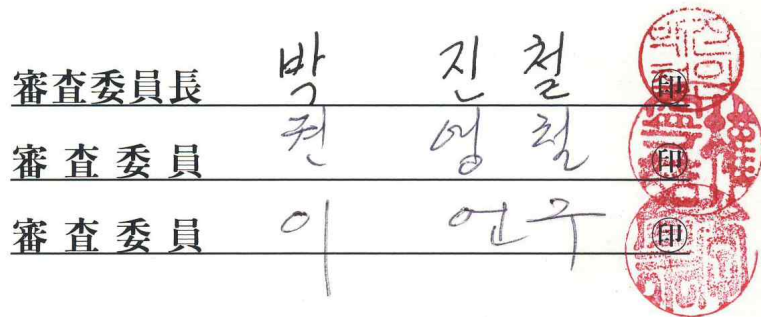 審査委員長 박 진 철 印
審査委員 권 영 철 印
審査委員 이 언구 印